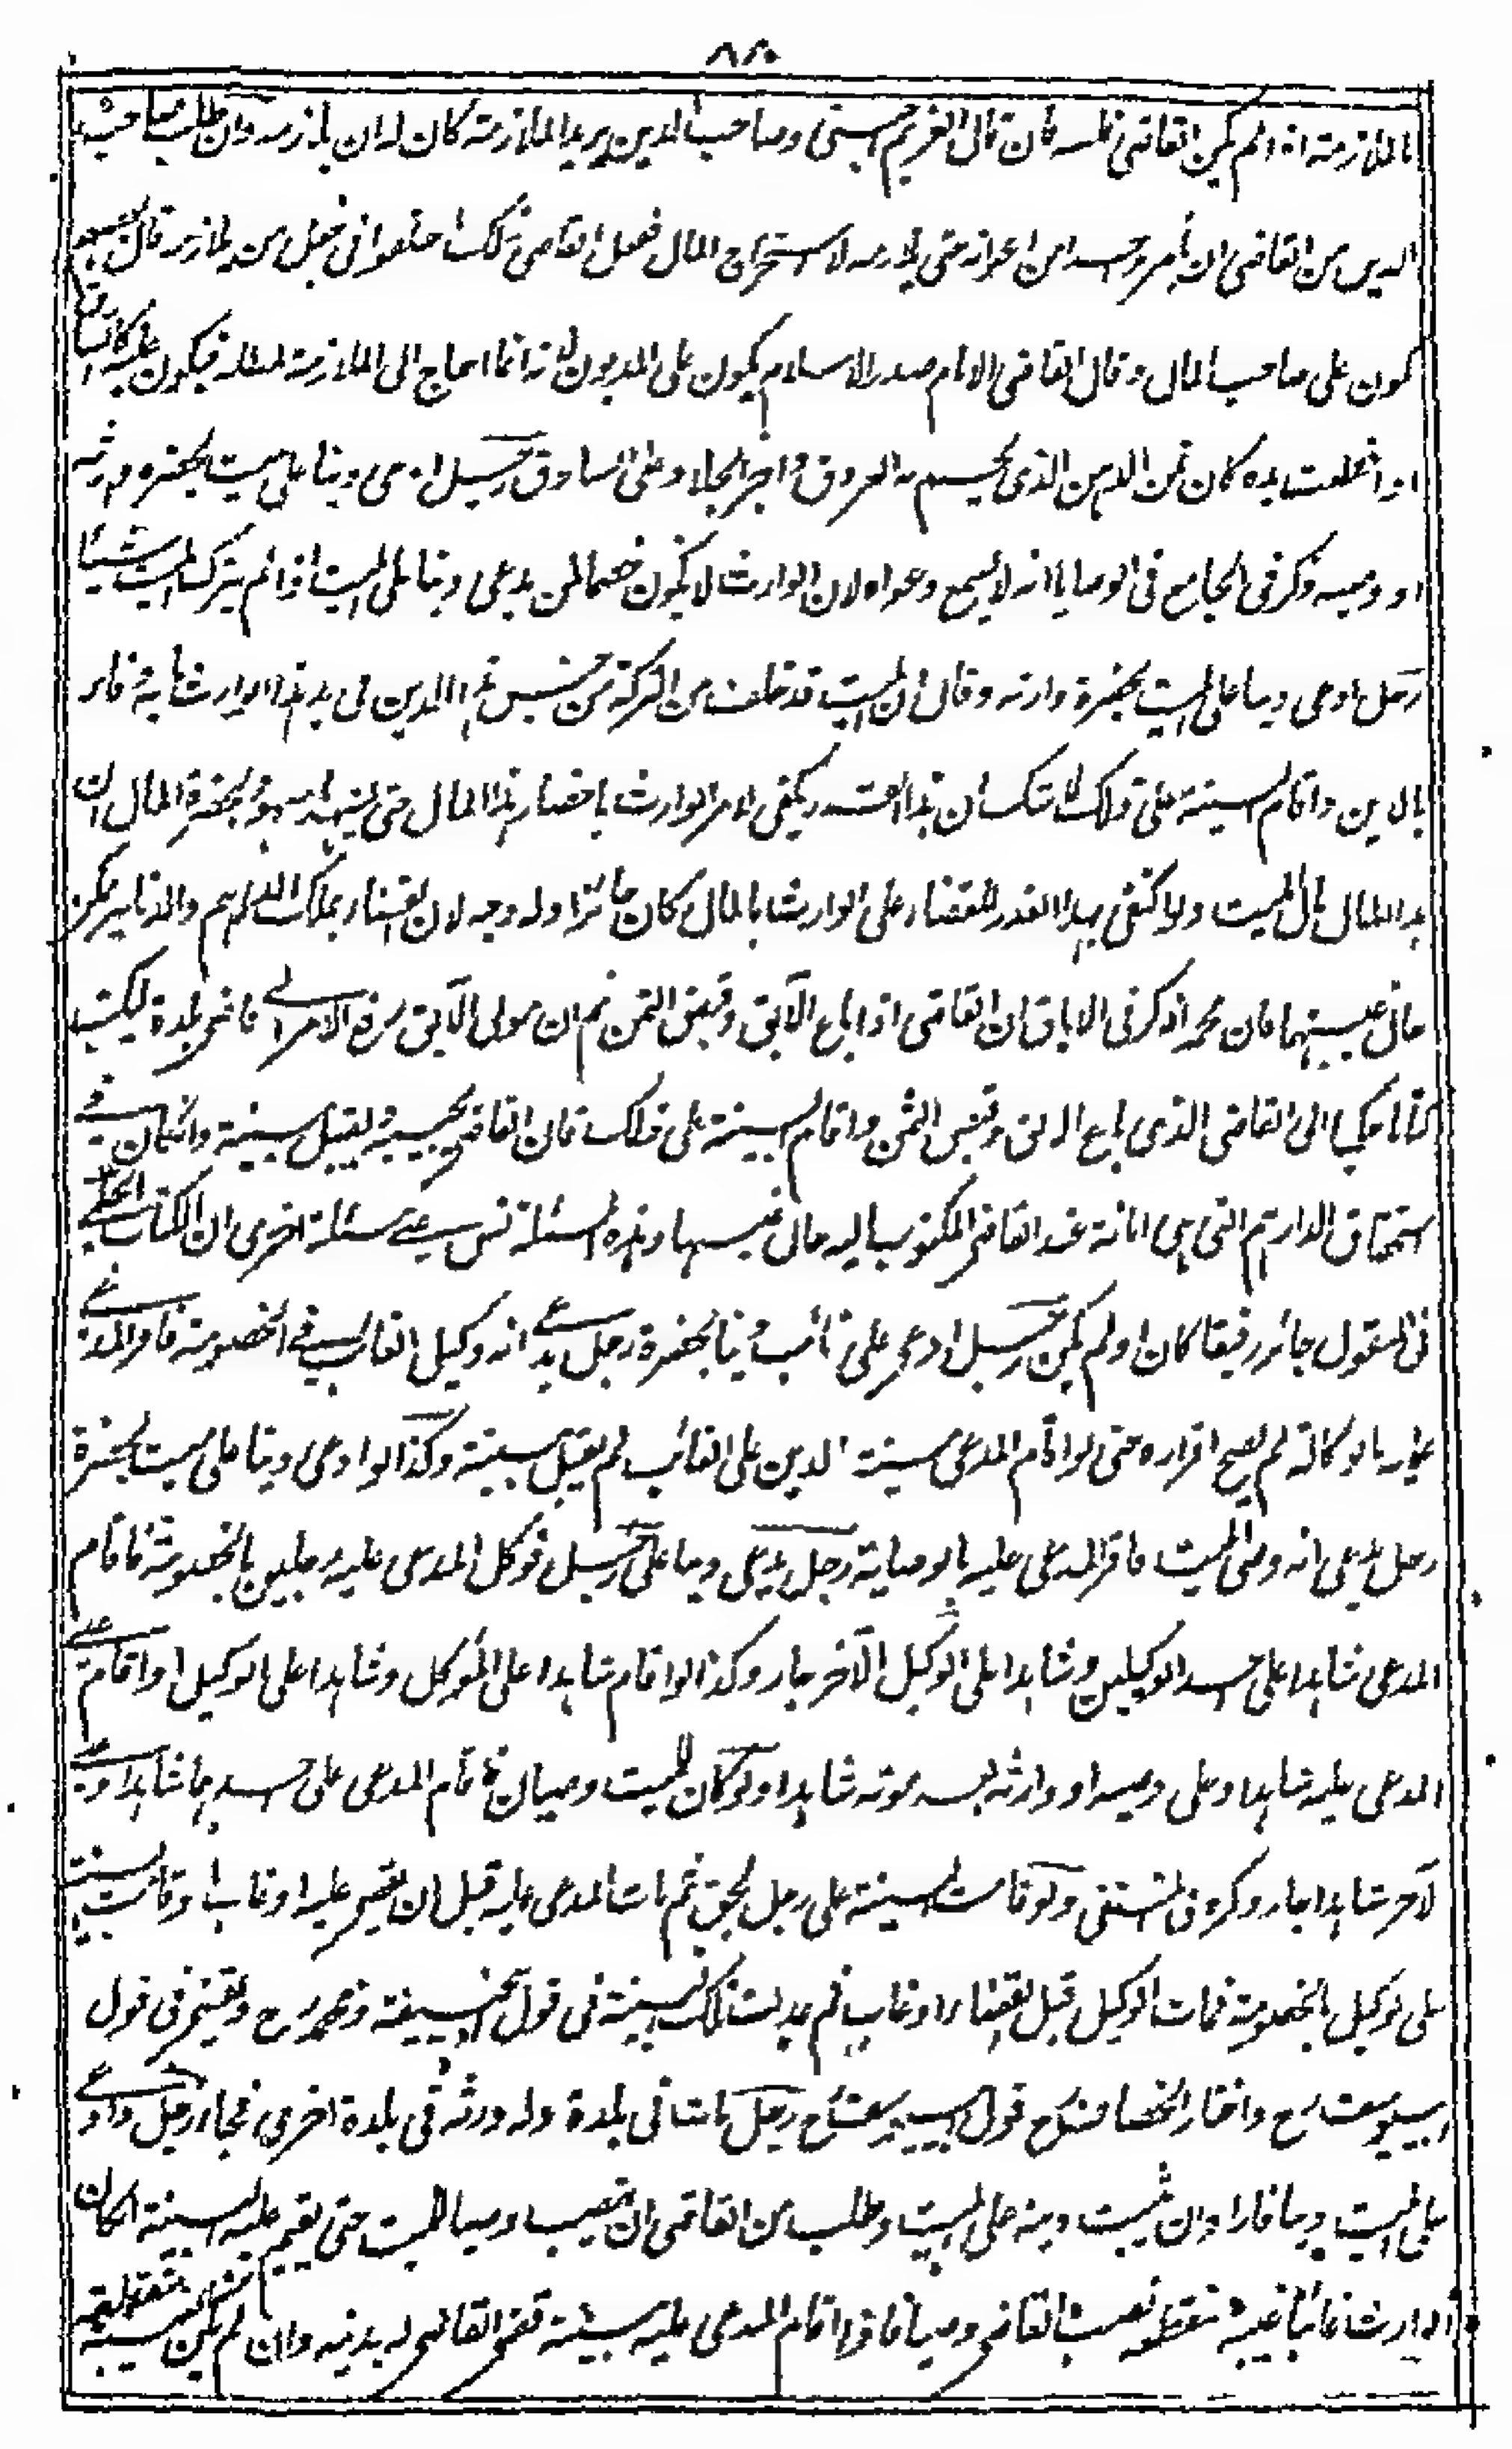 ٨٨٠
بالملازمة اذا لم يكن القاضي فلسه فان قال الغريم احبسني وصاحب الدين يريد الملازمة كان له ان يلازمه وان طلب صاحب
الدين من القاضي ان يأمر واحدا من اعوانه حتى يلازمه لاستخراج المال ففعل القاضي ذلك اختلفوا في جعل من يلازمه قال بعضهم
يكون على صاحب المال وقال القاضي الامام صدر الاسلام يكون على المديون لانه انما احتاج الى الملازمة لمطله فيكون عليه كالسارق
اذا قطعت يده كان ثمن الدهن الذي يحسم به العروق واجر الجلاد على السارق رجل ادعى دينا على ميت بحضرة وارثه
او وصيه ذكر في الجامع في الوصايا انه لا يسمع دعواه لان الوارث لا يكون خصما لمن يدعي دينا على الميت اذا لم يترك الميت شيئا
رجل ادعى دينا على الميت بحضرة وارثه وقال ان الميت قد خلف من التركة من جنس هذا الدين في يد هذا الوارث ما به وفاء
بالدين واقام البينة على ذلك لا شك ان هذا القدر يكفي لامر الوارث باحضار هذا المال حتى يشهد الشهود بحضرة المال ان
هذا المال مال الميت ولو اكتفى بهذا القدر للقضاء على الوارث بالمال كان جائزا وله وجه لان القضاء بملك الدراهم والدنانير ممكن
حال غيبتهما فان محمدا ذكر في الاباق ان القاضي اذا باع الآبق وقبض الثمن ثم ان مولى الآبق رفع الامر الى قاضي بلدة ليكتب
كتابا حكميا الى القاضي الذي باع الآبق وقبض الثمن واقام البينة على ذلك فان القاضي يجيبه ويقبل بينته وان كان في
استحقاق الدراهم التي هي امانة عند القاضي المكتوب اليه حال غيبتها وهذه المسئلة نص على مسئلة اخرى ان الكتاب الحكمي
في المنقول جائز رقيقا كان او لم يكن رجل ادعى على غائب دينا بحضرة رجل يدعي انه وكيل الغائب في الخصومة فاقر المدعى
عليه بالوكالة لم يصح اقراره حتى لو اقام المدعي بينته الدين على الغائب لم يقبل بينته وكذا لو ادعى دينا على ميت بحضرة
رجل يدعي انه وصي الميت فاقر المدعى عليه بالوصاية رجل يدعي دينا على رجل فوكل المدعى عليه رجلين بالخصومة فاقام
المدعي شاهدا على احد الوكيلين وشاهدا على الوكيل الآخر جاز وكذا لو اقام شاهدا على الموكل وشاهدا على الوكيل او اقام على
المدعى عليه شاهدا وعلى وصيه او وارثه بعد موته شاهدا ولو كان للميت وصيان فاقام المدعي على احدهما شاهدا وعلى
الآخر شاهدا جاز ذكره في المنتقى ولو قامت البينة على رجل بحق ثم مات المدعى عليه قبل ان يقضى عليه او غاب او قامت البينة
على وكيل بالخصومة فمات الوكيل قبل القضاء او غاب ثم عدلت تلك البينة في قول ابي حنيفة ومحمد رح ويقضى في قول
ابي يوسف رح واختار الخصاف رح قول ابي يوسف رح رجل مات في بلدة وله ورثة في بلدة اخرى فجاء رجل وادعى
على الميت دينا فاراد ان يثبت دينه على الميت وطلب من القاضي ان ينصب وصيا للميت حتى يقيم عليه البينة ان كان
الوارث غائبا غيبة منقطعة نصب القاضي وصيا فاذا اقام المدعي عليه بينة قضى القاضي له بدينه وان لم يكن الغيبة منقطعة